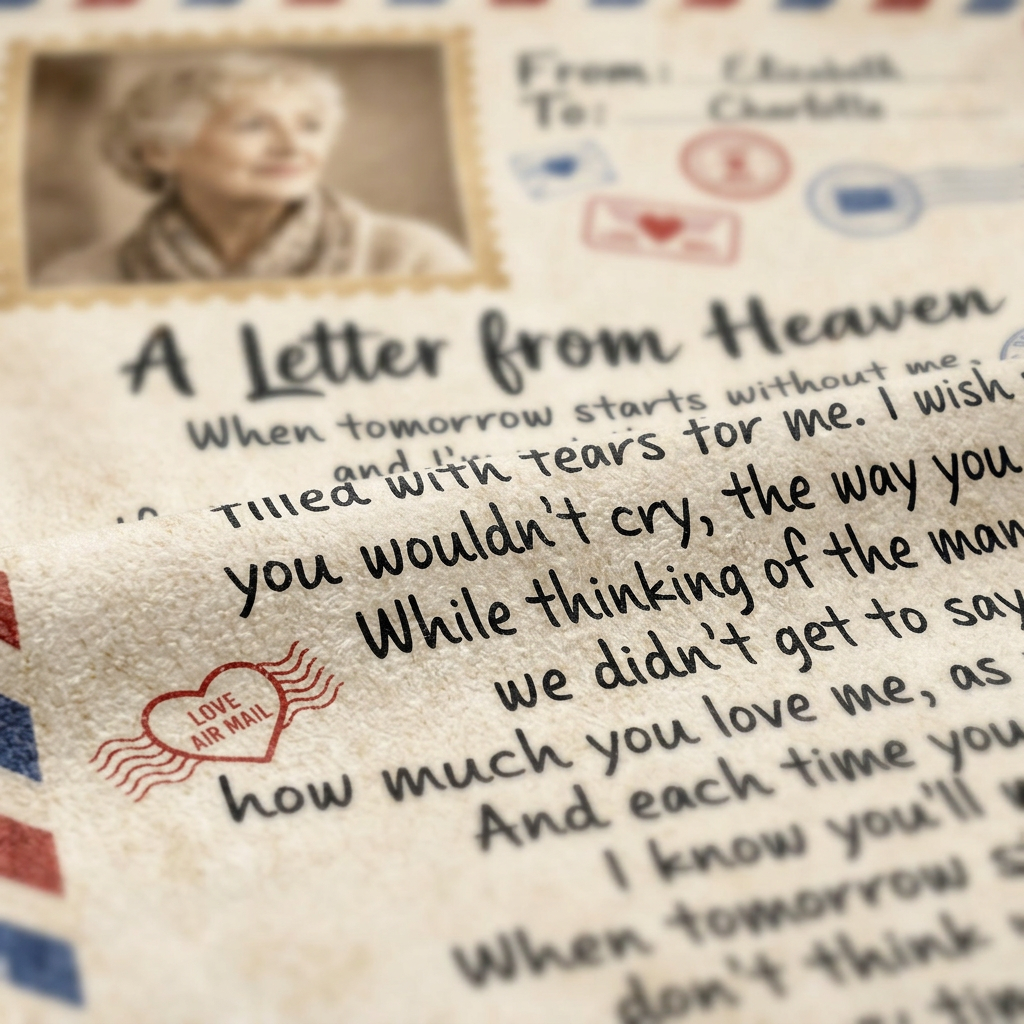 From: Elizabeth
To: Charlotte
A Letter from Heaven
When tomorrow starts without me,
and I'm
filled with tears for me. I wish
you wouldn't cry, the way you
While thinking of the
we didn't get to say
how much you love me, as
And each time you
I know you'll
When tomorrow
don't think
LOVE
AIR MAIL